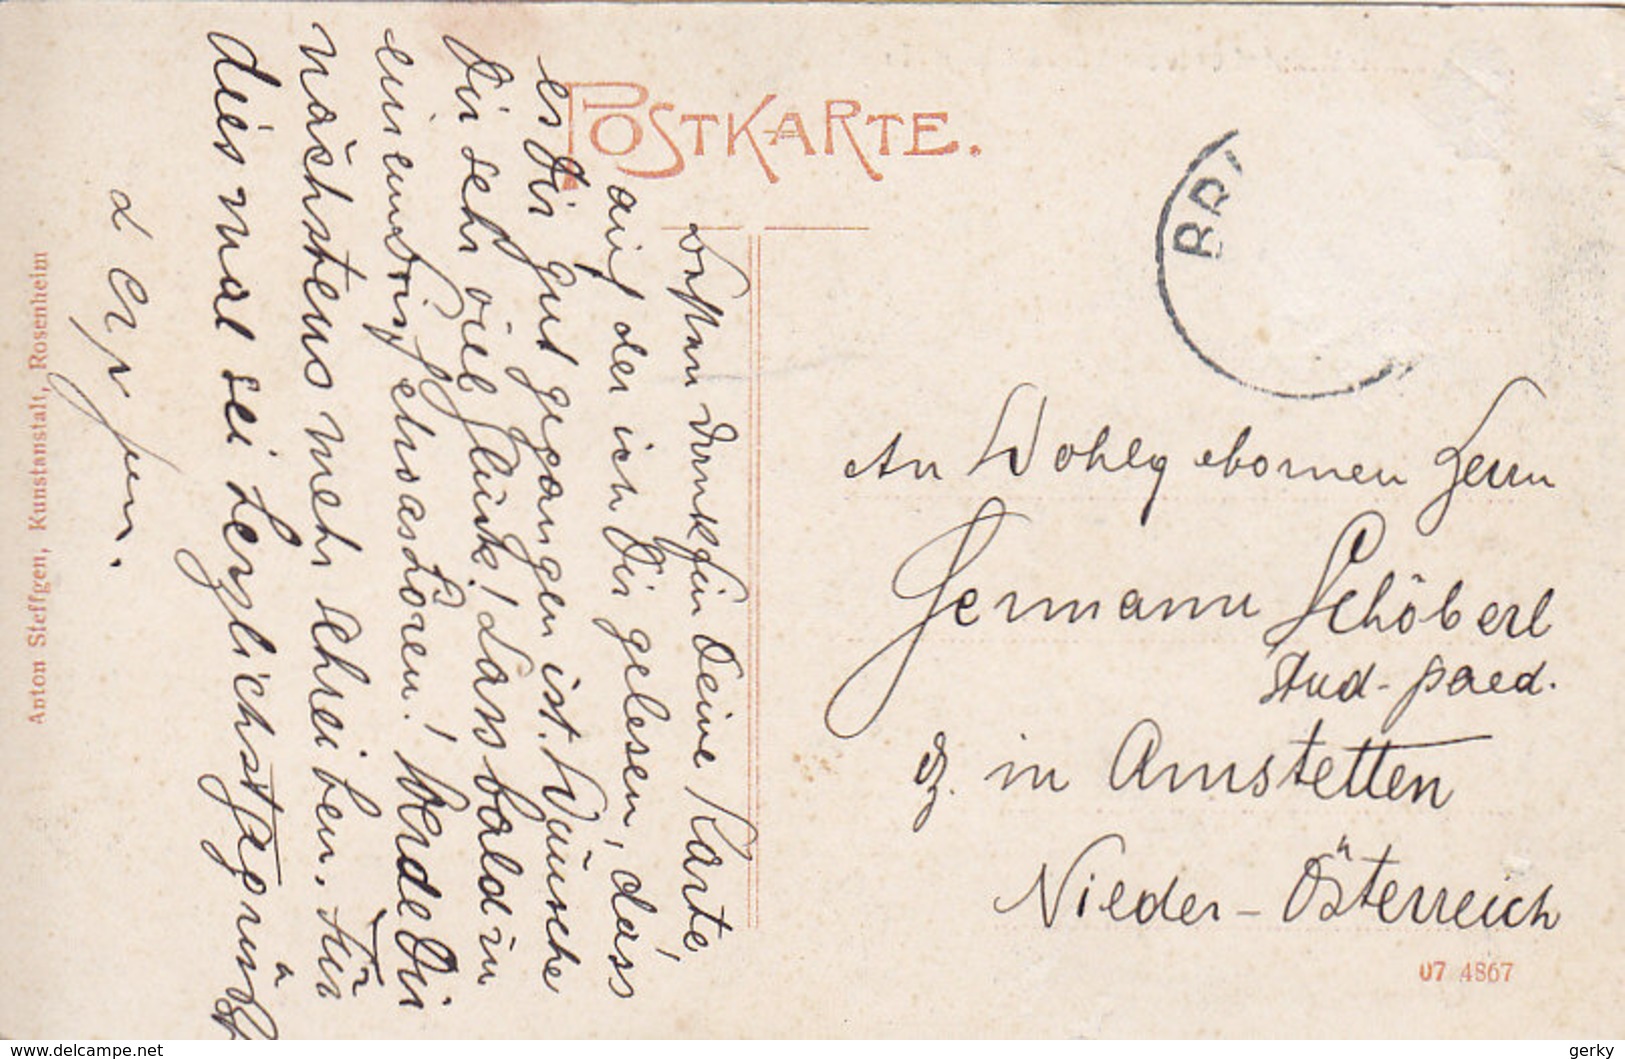 POSTKARTE.
Besten Dank für Deine Karte,
auf der ich Dir gelesen, dass
es Dir gut gegangen ist. Wünsche
Dir sehr viel Glück! Lass bald in
einem Brief etwas hören! Werde Dir
nächstens mehr schreiben. Für
diesmal sei herzlichst gegrüßt
An Wohlgebornen Herrn
Hermann Schöberl
Stud. paed.
in Amstetten
Nieder-Österreich
07 4867
Anton Steffgen, Kunstanstalt, Rosenheim
BR
www.delcampe.net
gerky